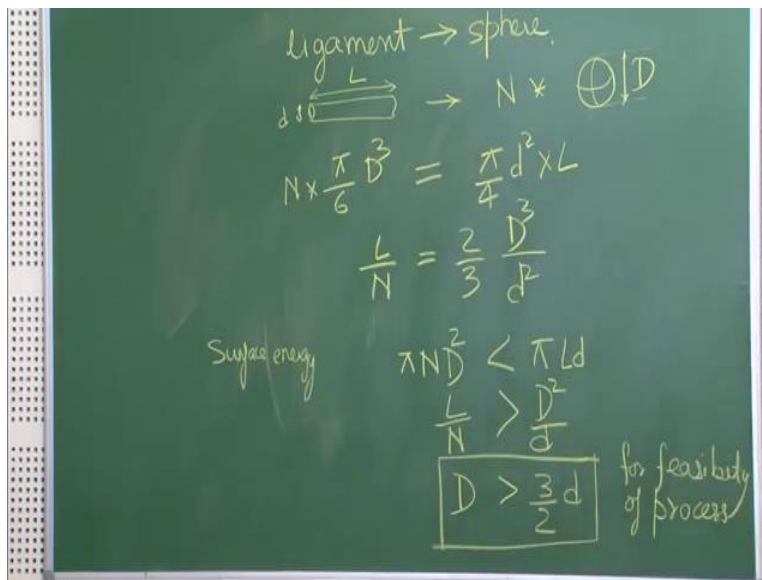 ligament → sphere.
L
d ↕ → N * D
N × π/6 D³ = π/4 d² × L
L/N = 2/3 D³/d²
Surface energy πND² < πLd
L/N > D²/d
D > 3/2 d for feasibility of process